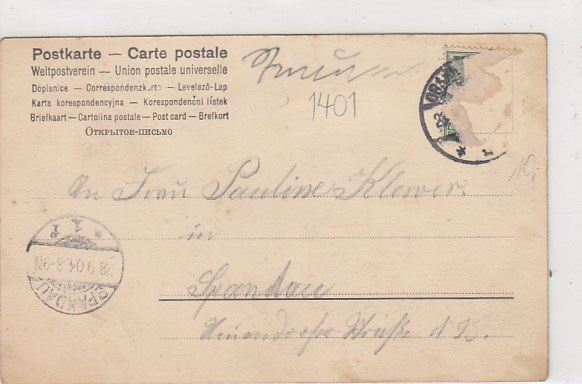 Postkarte — Carte postale
Weltpostverein — Union postale universelle
Dopisnice — Correspondenzkarte — Levelező-Lap
Karta korespondencyjna — Korespondenční lístek
Briefkaart — Cartolina postale — Post card — Brefkort
Открытое-письмо
1401
An Frau Pauline Klewer.
in
Spandau
Neuendorfer Straße
SPANDAU
28.9.04.8-9N
* 1 f